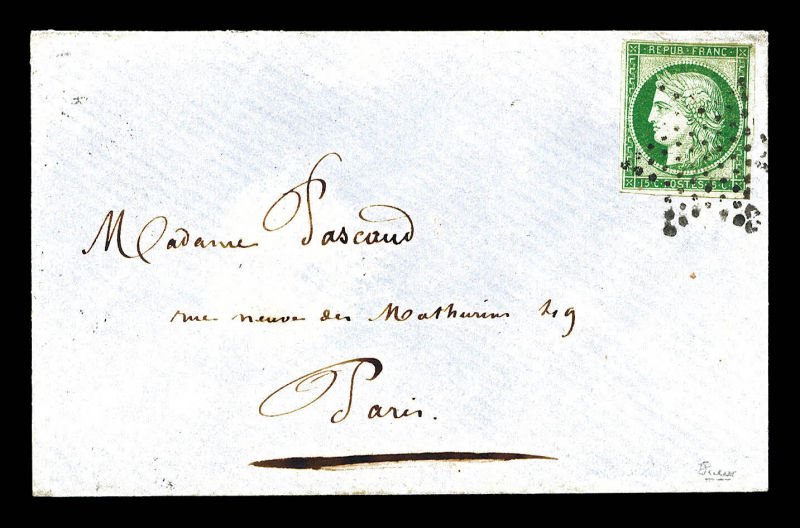 REPUB. FRANC.
15 c. POSTES 15 c.
Madame Pascaud
rue neuve des Mathurins 49
Paris.